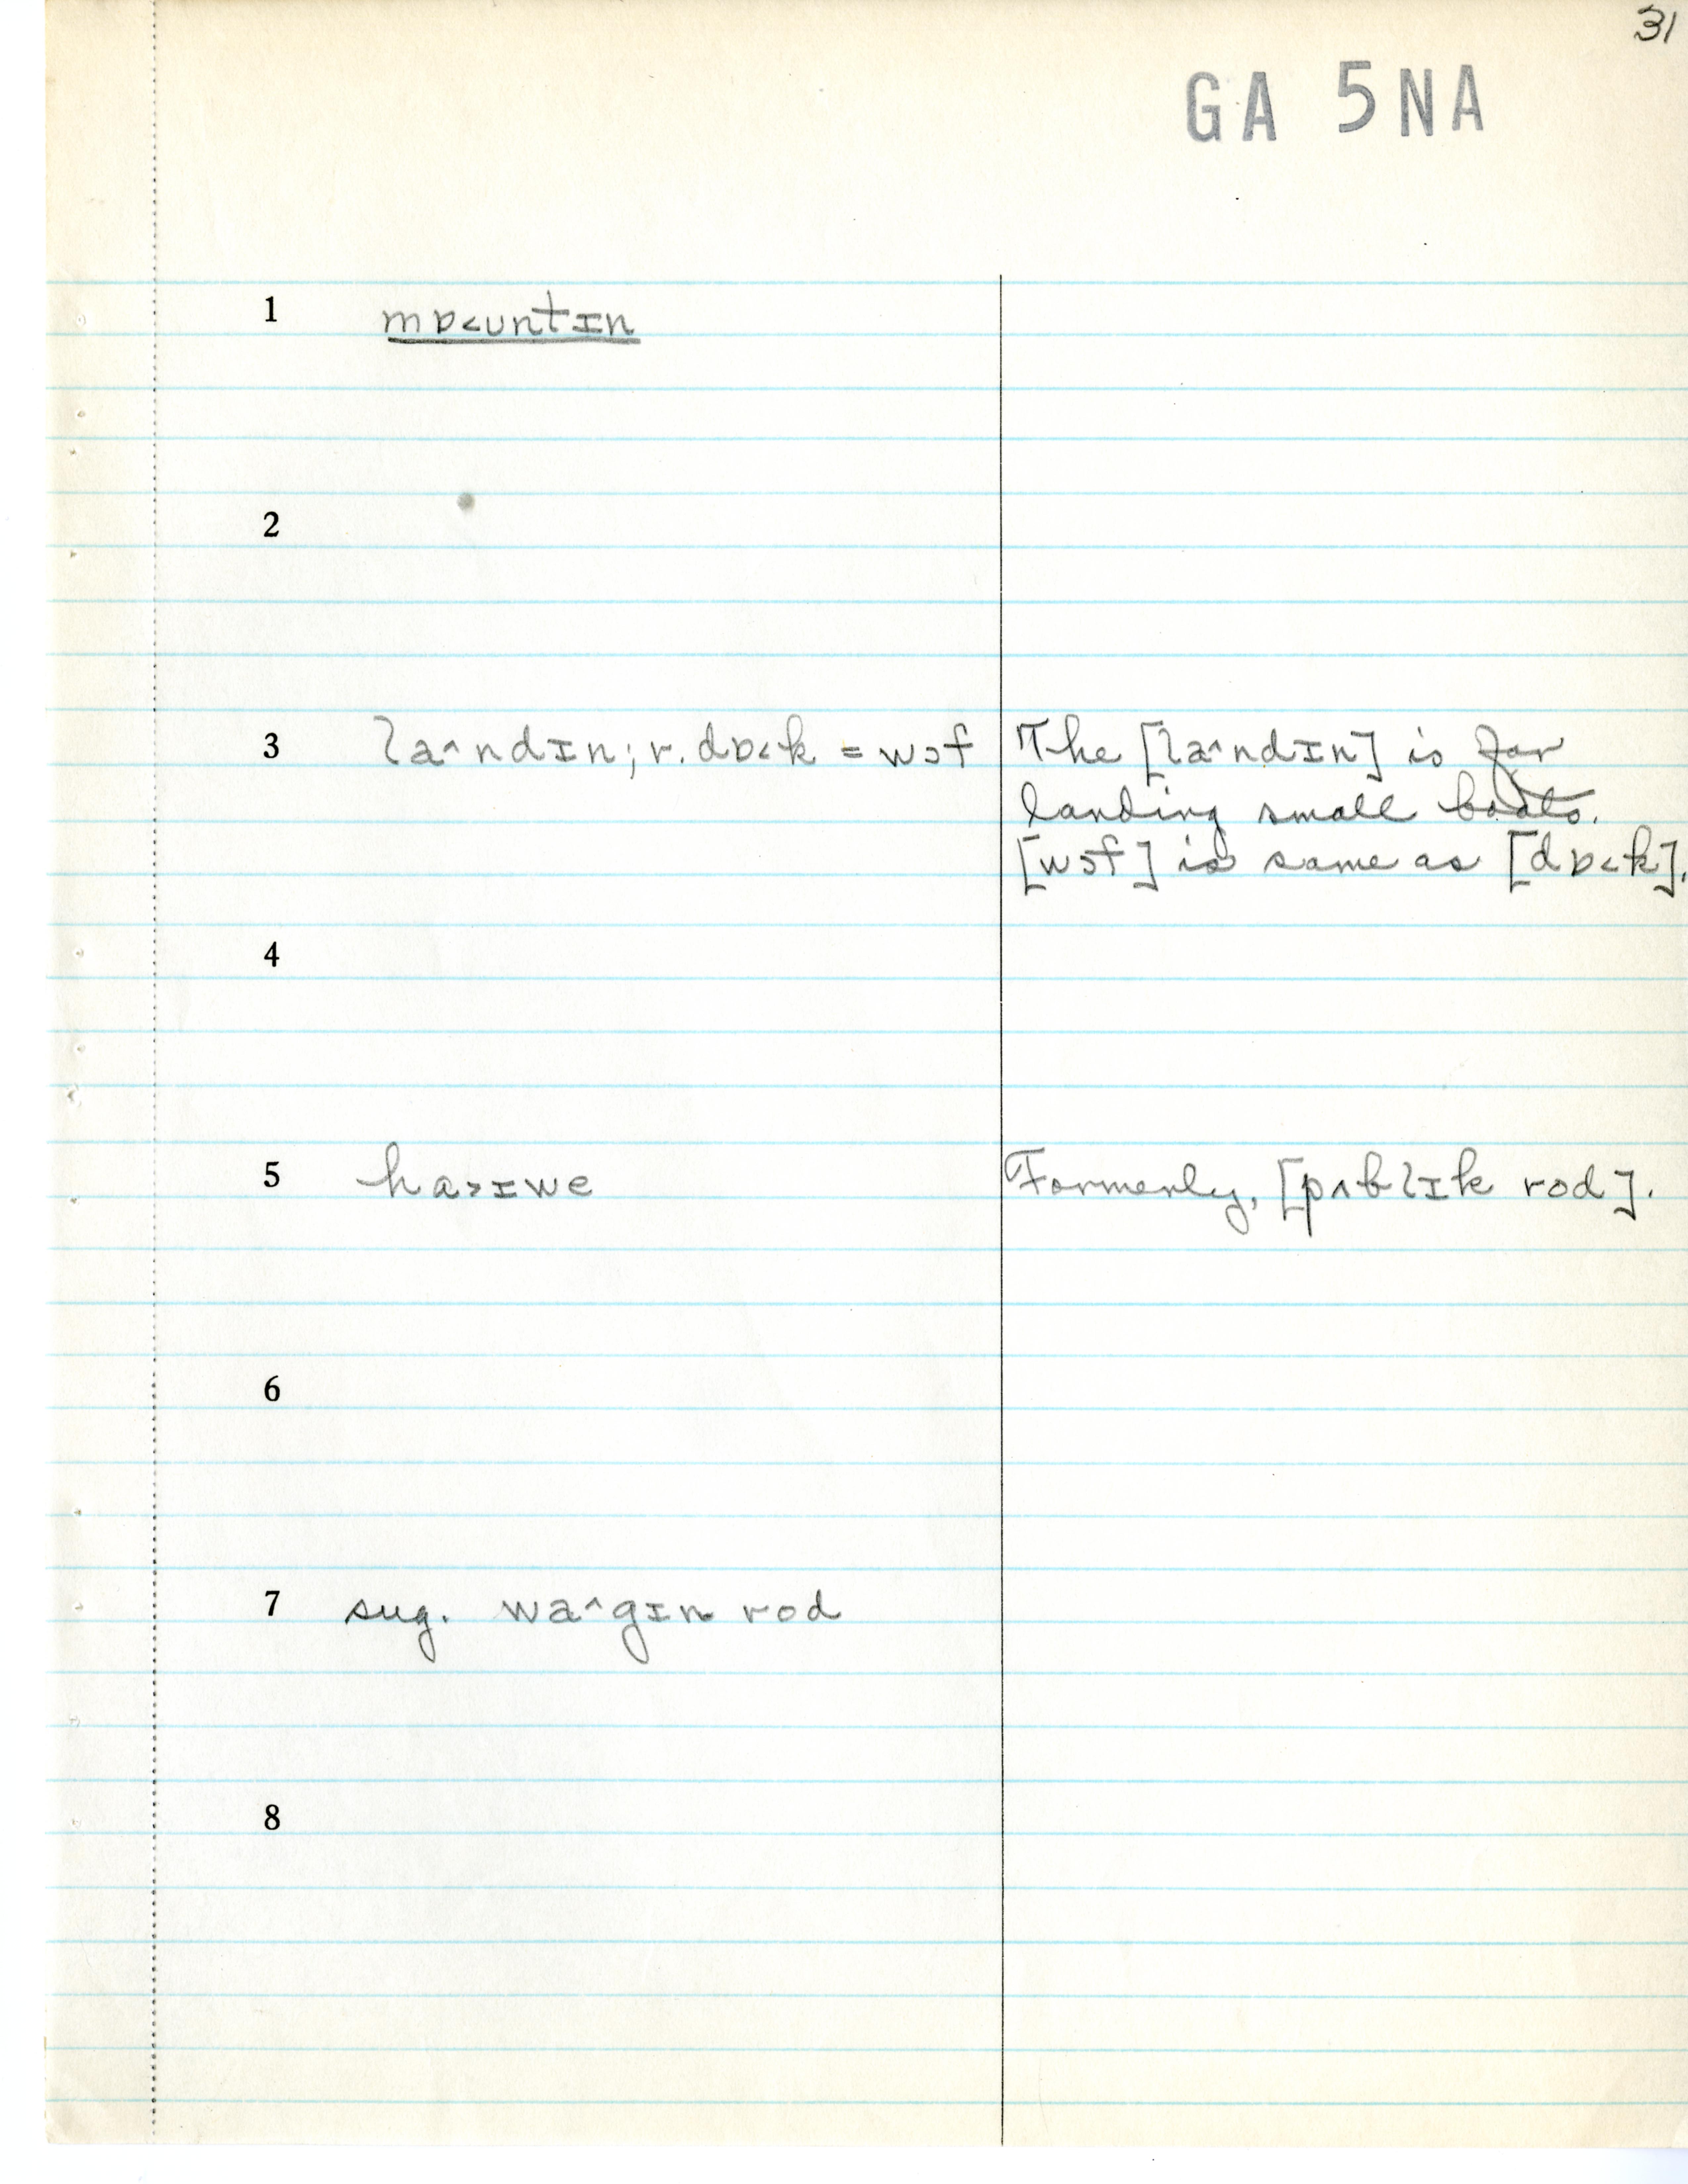 31
GA 5NA
1 mɒ˂ʊntɪn
2
3 la^ndɪn; r. dɒ˂k = wɔf The [la^ndɪn] is for
landing small boats.
[wɔf] is same as [dɒ˂k].
4
5 ha˃ɪwe Formerly, [pʌblɪk rod].
6
7 sug. wa^gɪn rod
8